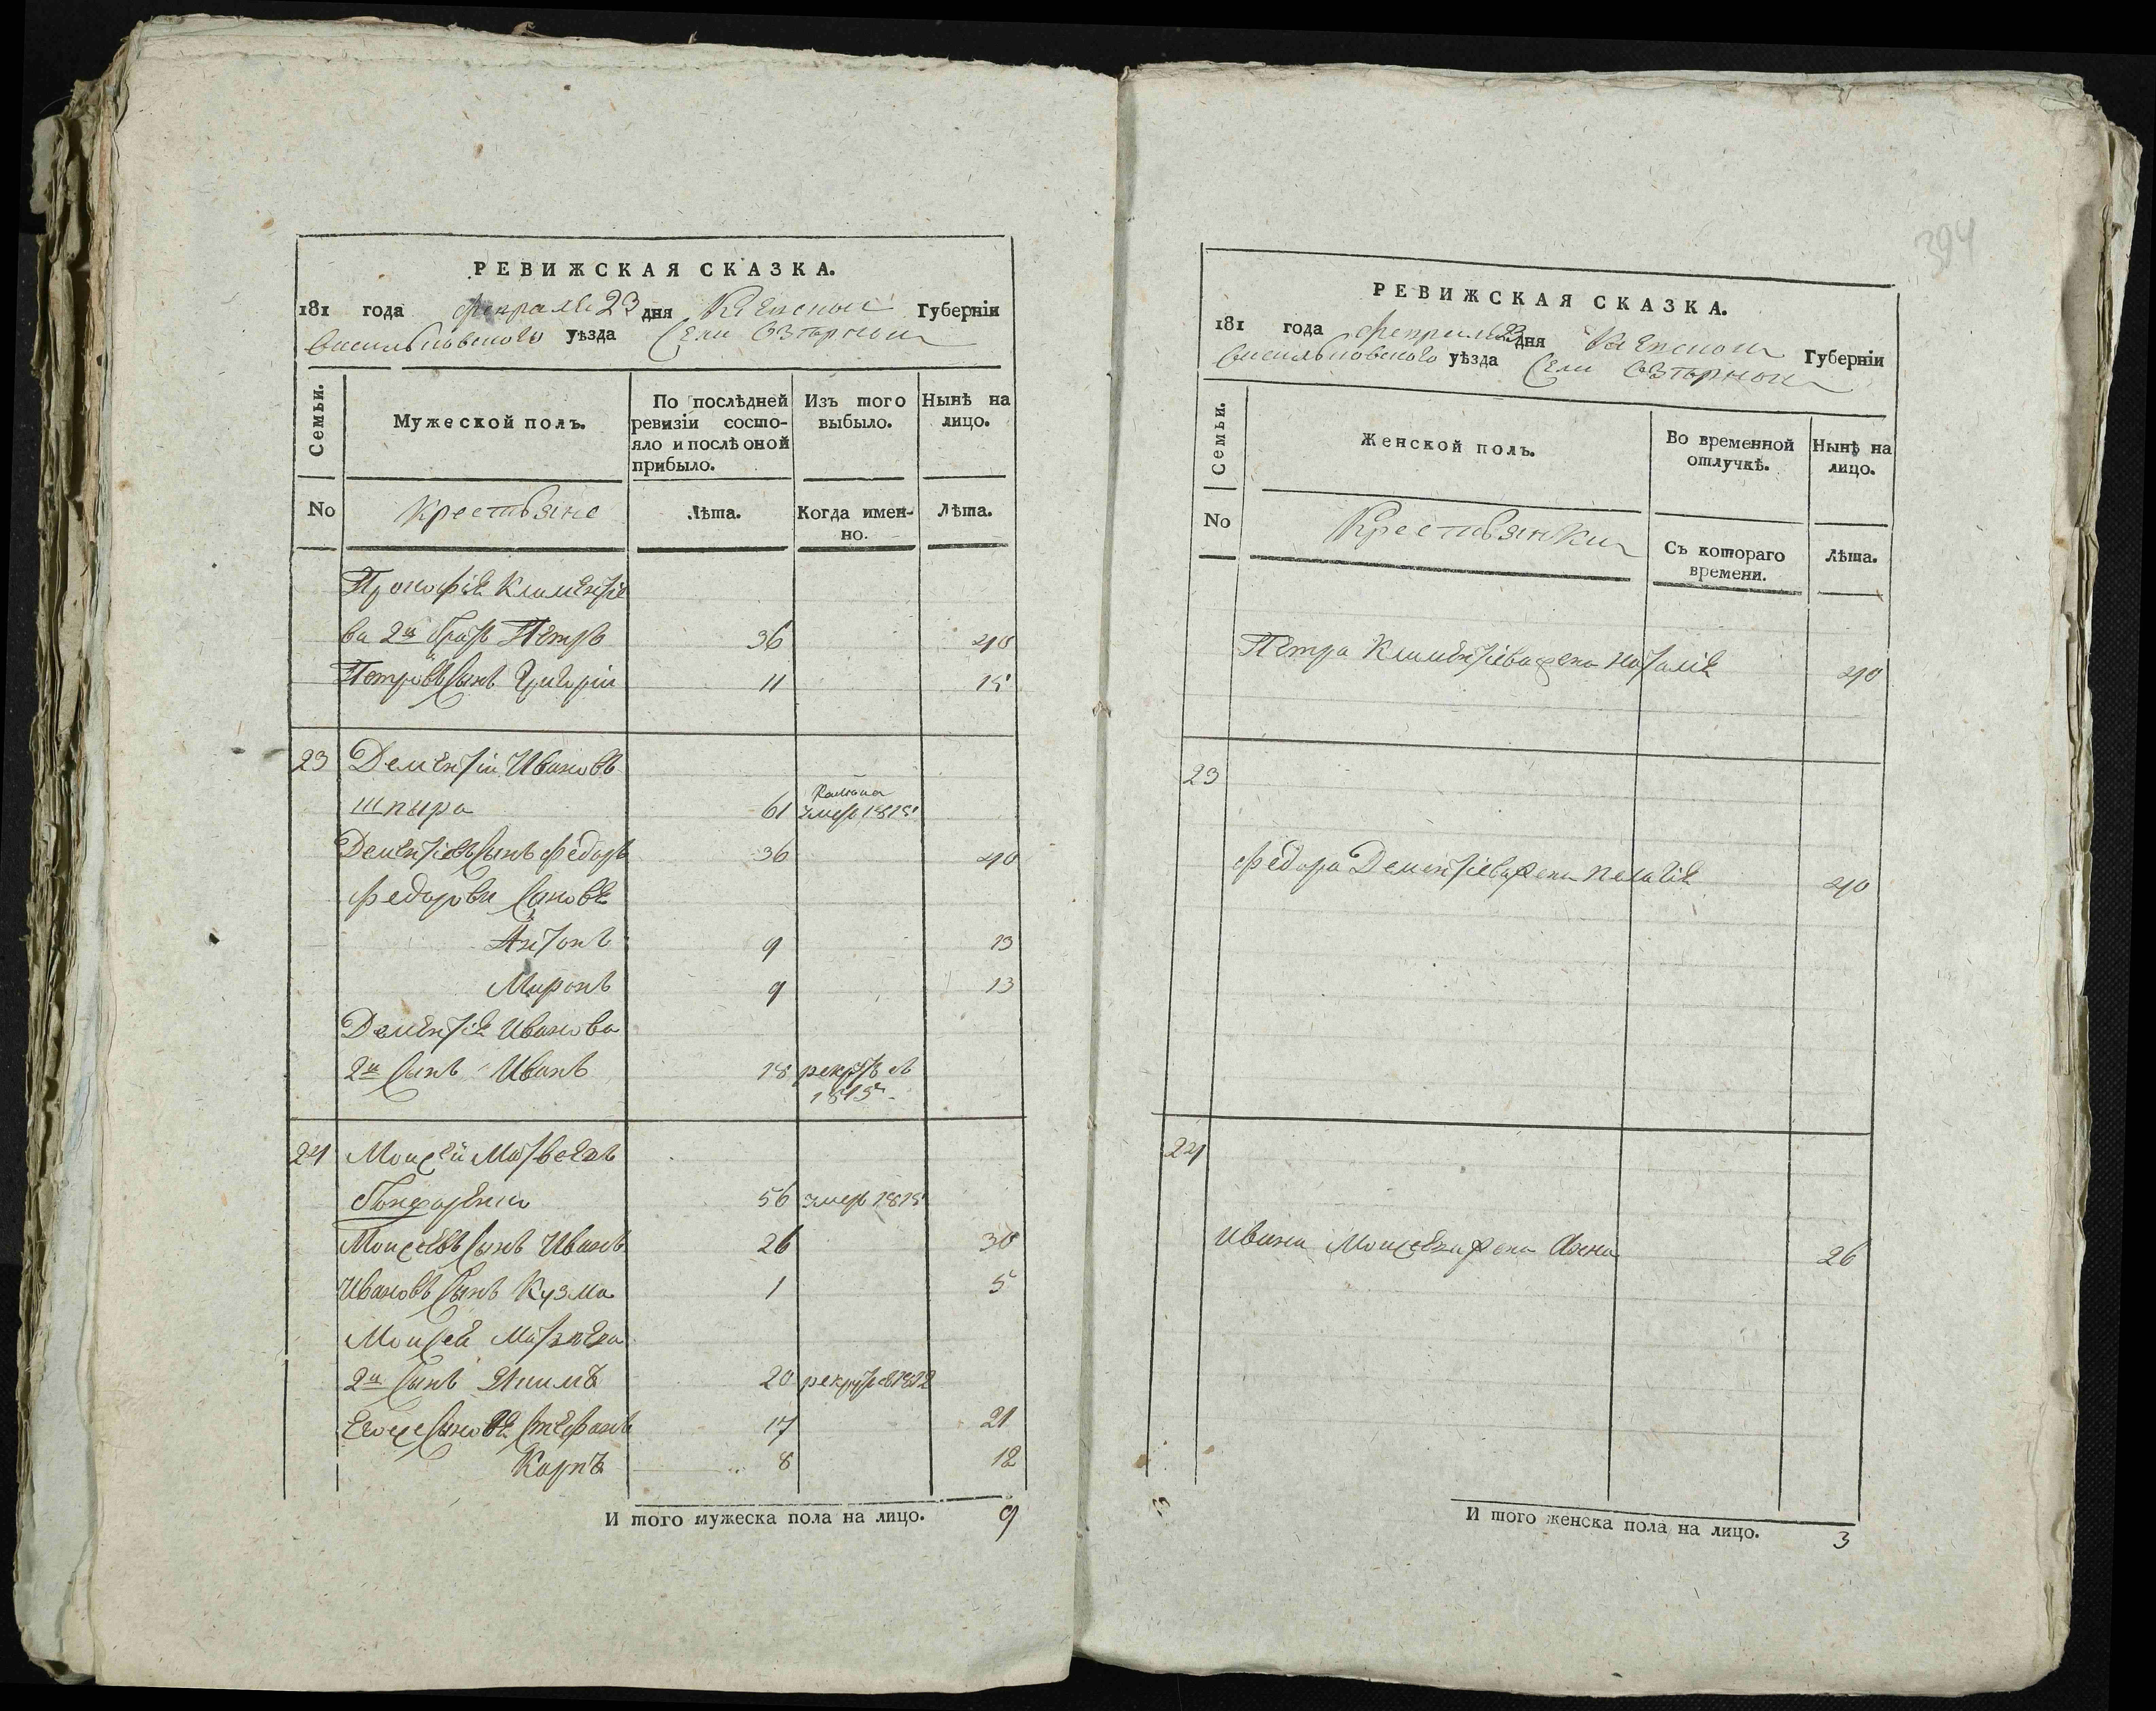 РЕВИЖСКАЯ СКАЗКА.
181 года февраля 23 дня Киевской Губерніи
Васильковского уѣзда Села Озѣрной
Семьи.
Мужеской полъ.
По послѣдней ревизіи состо-
яло и послѣ оной
прибыло.
Изъ того
выбыло.
Нынѣ на
лицо.
No
Крестьяне
Лѣта.
Когда имен-
но.
Лѣта.
Прокофія Климентіе
ва 2й братъ Петръ 36 40
Петровъ сынъ Григорій 11 15
23 Дементій Ивановъ
шпыра 61 умеръ 1815
Дементіевъ сынъ Федоръ 36 40
Федоровы сыновя
Антонъ 9 13
Миронъ 9 13
Дементія Иванова
2й сынъ Иванъ 18 рекрутъ въ
1815
24 Моисей Матвеевъ
Бондаренко 56 умеръ 1815
Моисеевъ сынъ Иванъ 26 30
Ивановъ сынъ Кузма 1 5
Моисея Матвеева
2й сынъ Якимъ 20 рекрутъ в 1812
Его же сыновя Стефанъ 17 21
Карпъ 8 12
И того мужеска пола на лицо. 9
394
РЕВИЖСКАЯ СКАЗКА.
181 года февраля 23 дня Киевской Губерніи
Васильковского уѣзда Села Озѣрной
Семьи.
Женской полъ.
Во временной
отлучкѣ.
Нынѣ на
лицо.
No
Крестьянки
Съ котораго
времени.
Лѣта.
Петра Климентіева жена Наталія 40
23
Федора Дементіева жена Пелагія 40
24
Ивана Моисеева жена Анна 26
И того женска пола на лицо. 3